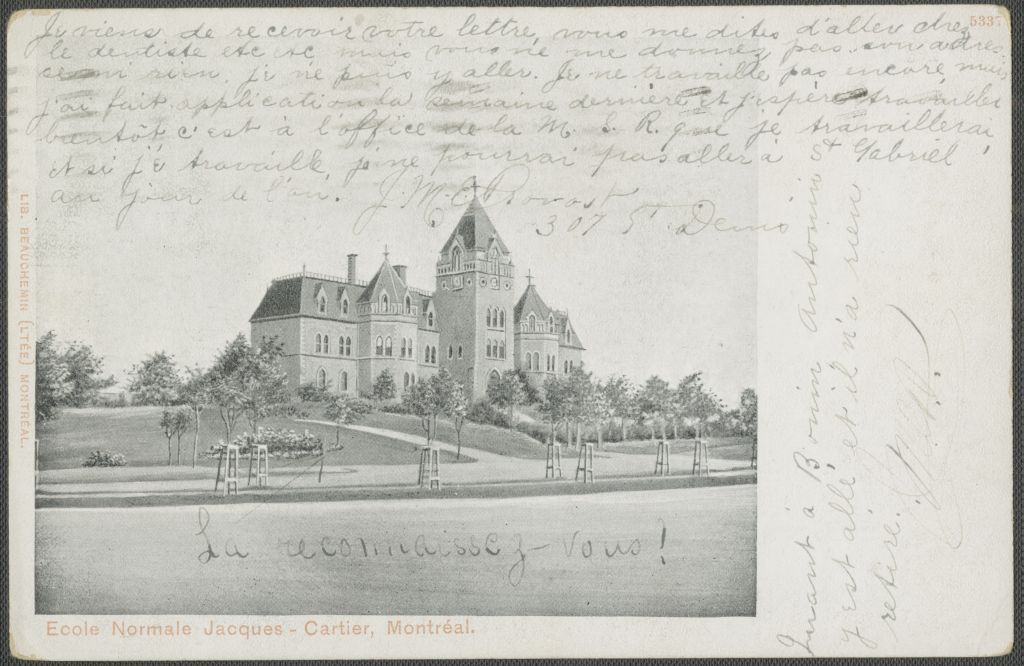 5337
Je viens de recevoir votre lettre, vous me dites d'aller chez
le dentiste etc etc mais vous ne me donnez pas son adres
ce ni rien, je ne puis y aller. Je ne travaille pas encore mais
j'ai fait application la semaine dernière et j'espère travailler
bientôt c'est à l'office de la M. S. R. que je travaillerai
et si je travaille je ne pourrai pas aller à St Gabriel
au jour de l'an. J. M. E. Provost
307 St Denis
La reconnaissez-vous!
Ecole Normale Jacques-Cartier, Montréal.
LIB. BEAUCHEMIN (LTÉE) MONTRÉAL.
Quant à Bonin Antonin
y est allé et il n'a rien
retiré.